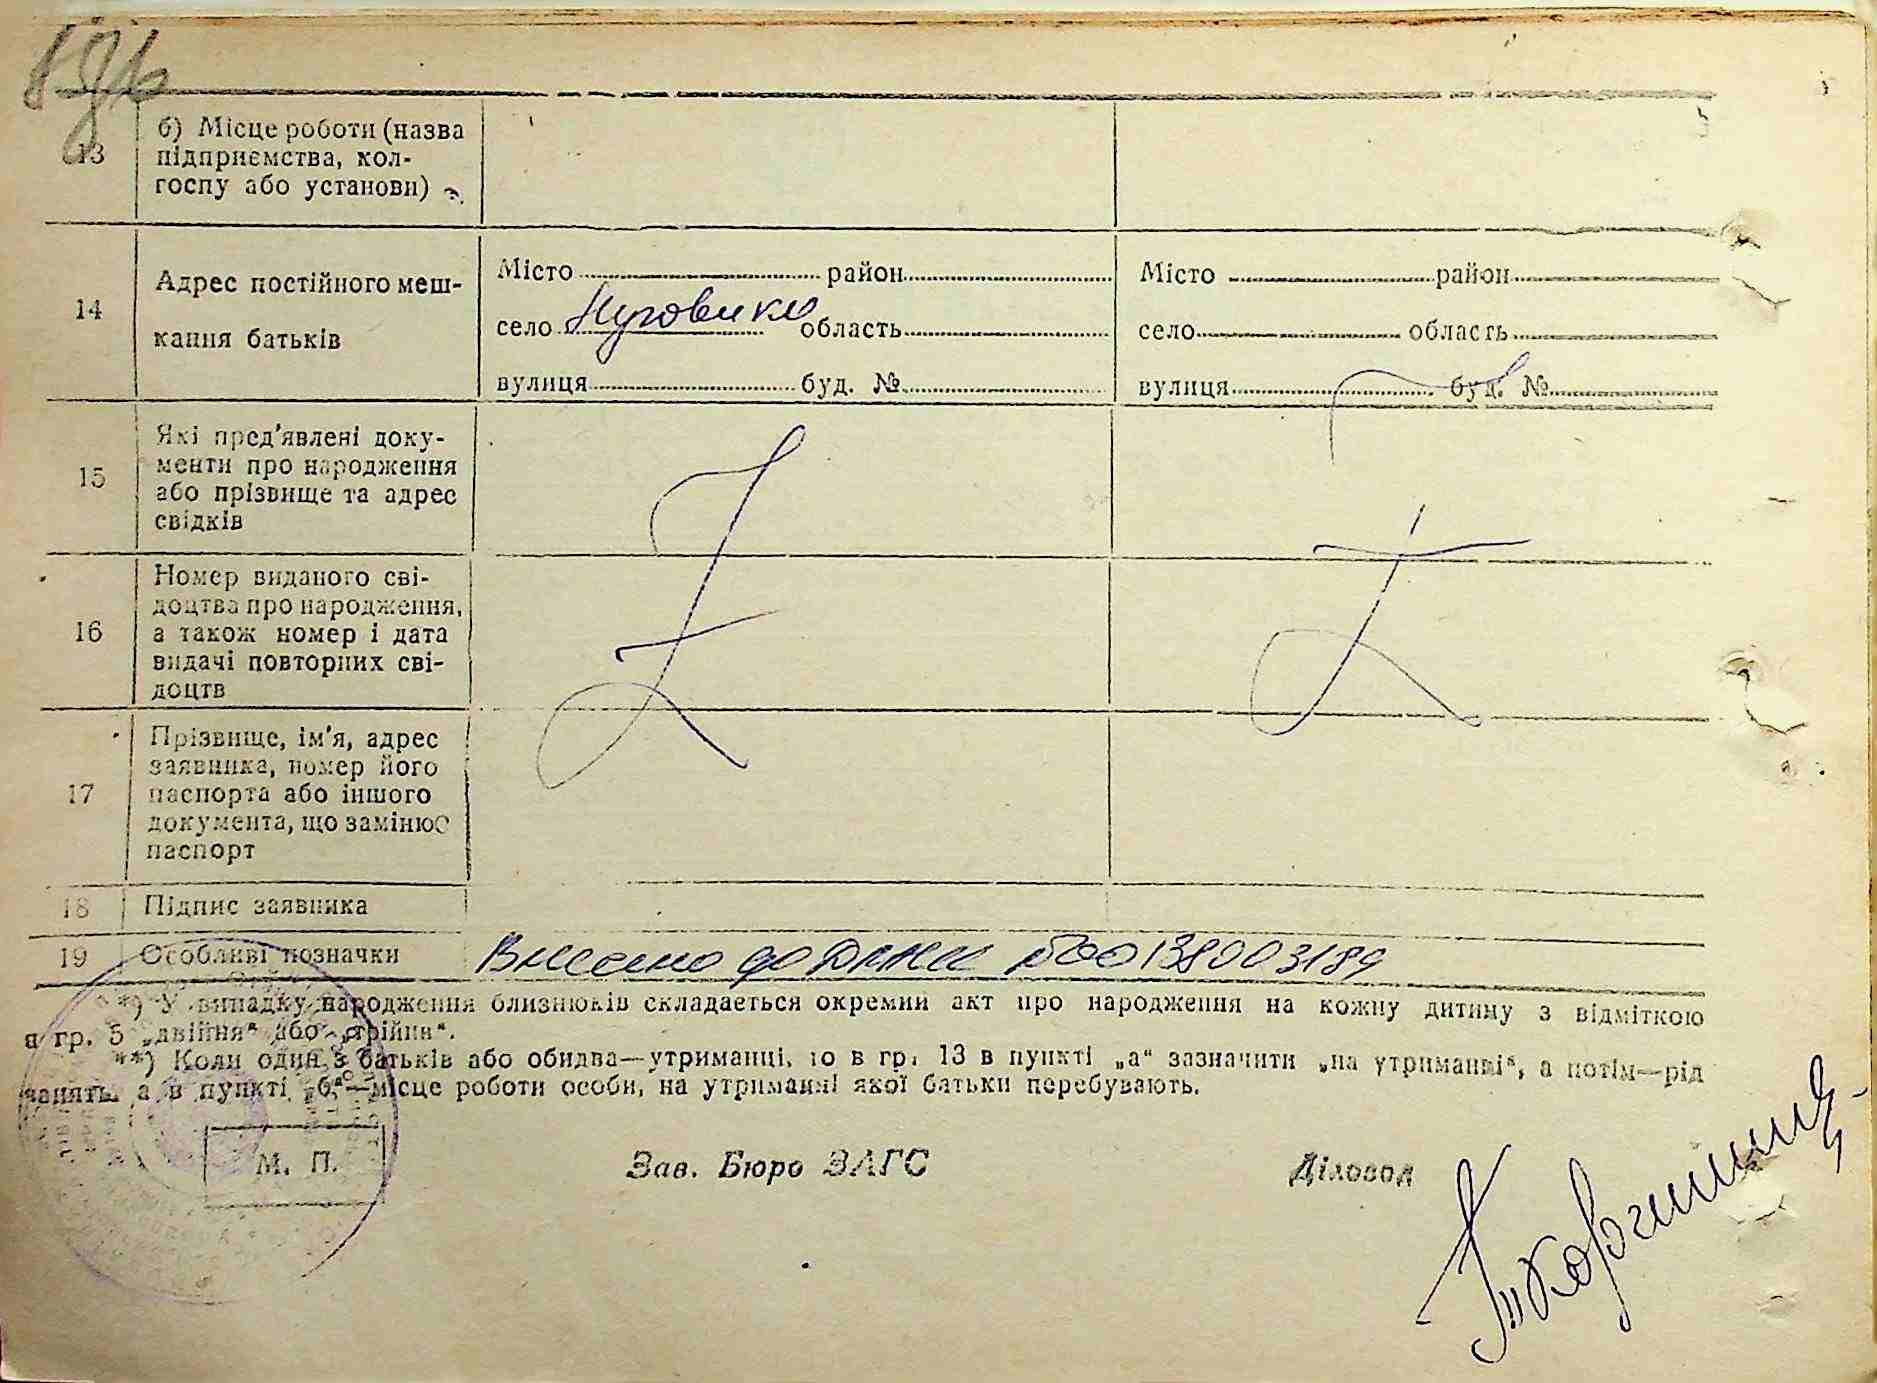 13
б) Місце роботи (назва
підприємства, кол-
госпу або установи)
14
Адрес постійного меш-
кання батьків
Місто район
село області
вулиця буд. №
Місто район
село область
вулиця буд. №
15
Які пред'явлені доку-
менти про народження
або прізвище та адрес
свідків
16
Номер виданого сві-
доцтва про народження,
а також номер і дата
видачі повторних сві-
доцтв
17
Прізвище, ім'я, адрес
заявника, номер його
паспорта або іншого
документа, що замінює
паспорт
18 Підпис заявника
19 Особливі позначки Внесено до ДРАЦС №00138003189
*) У випадку народження близнюків складається окремий акт про народження на кожну дитину з відміткою
в гр. 5 „двійня" або „трійня".
**) Коли один з батьків або обидва—утриманці, то в гр. 13 в пункті „а" зазначити „на утриманні", а потім—рід
занять, а в пункті „б"—місце роботи особи, на утриманні якої батьки перебувають.
М. П. Зав. Бюро ЗАГС Діловод